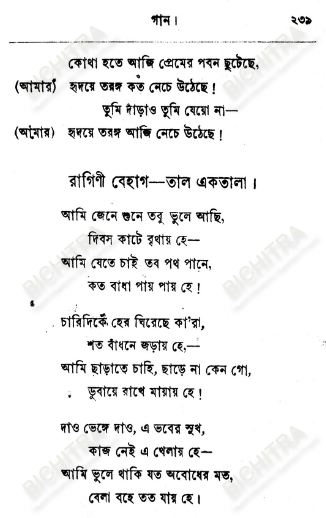 গান।
২৩৯
কোথা হতে আজি প্রেমের পবন ছুটেছে,
(আমার) হৃদয়ে তরঙ্গ কত নেচে উঠেছে!
তুমি দাঁড়াও তুমি যেয়ো না—
(আমার) হৃদয়ে তরঙ্গ আজি নেচে উঠেছে!
রাগিণী বেহাগ—তাল একতালা।
আমি জেনে শুনে তবু ভুলে আছি,
দিবস কাটে বৃথায় হে—
আমি যেতে চাই তব পথ পানে,
কত বাধা পায় পায় হে!
চারিদিকে হের ঘিরেছে কা'রা,
শত বাঁধনে জড়ায় হে,—
আমি ছাড়াতে চাহি, ছাড়ে না কেন গো,
ডুবায়ে রাখে মায়ায় হে!
দাও ভেঙ্গে দাও, এ ভবের সুখ,
কাজ নেই এ খেলায় হে—
আমি ভুলে থাকি যত অবোধের মত,
বেলা বহে তত যায় হে।
BICHITRA
BICHITRA
BICHITRA
BICHITRA
BICHITRA
BICHITRA